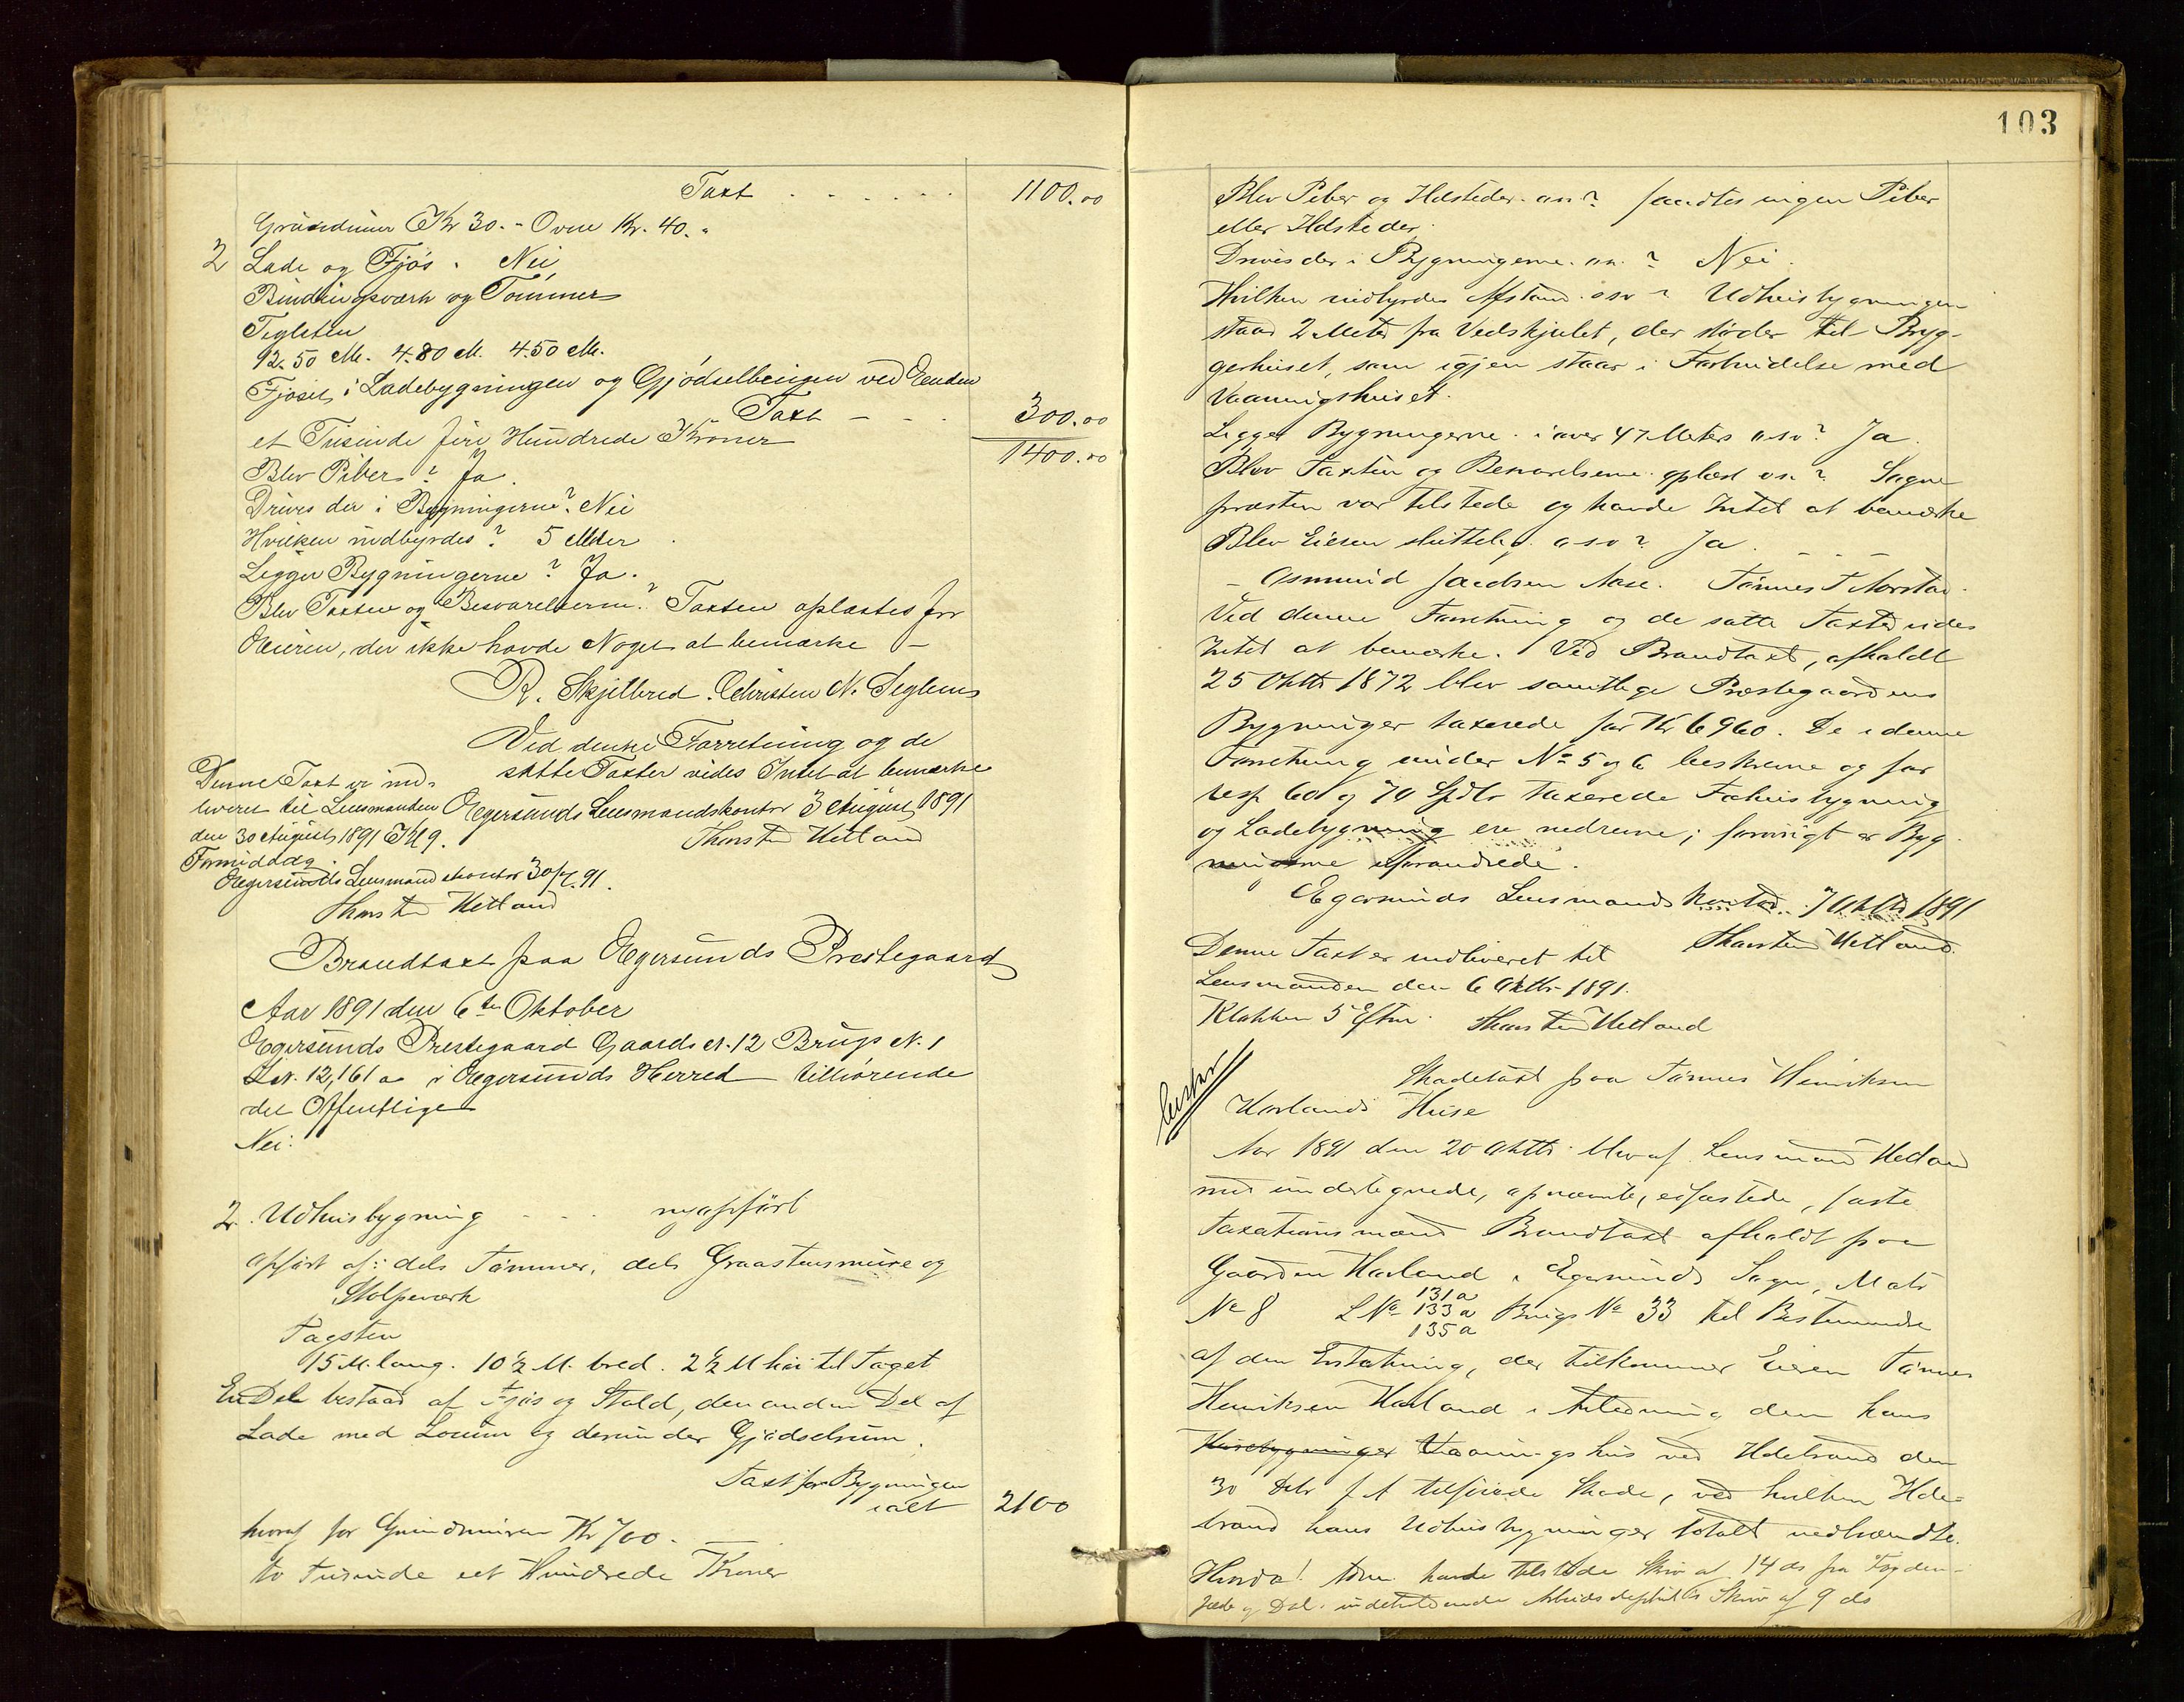 Taxt . . . . . . 1100.00
Grundmur Kr 30.- Ovne Kr. 40.-
2 Lade og Fjøs . Nei
Bindingsværk og Tømmer
Teglsten
12.50 M. 4.80 M. 4.50 M.
Fjøset i Ladebygningen og Gjødselbingen ved Enden
Taxt - - . 300.00
et Tusinde fire Hundrede Kroner 1400.00
Blev Piber? Ja.
Drives der i Bygningerne? Nei
Hvilken indbyrdes? 5 Meter
Ligger Bygningerne? Ja.
Blev Taxten og Besvarelserne? Taxten oplæstes for
Eieren, der ikke havde Noget at bemærke -
R. Skjelbred. Christen N. Seglem
Ved denne Forretning og de
satte Taxter vides Intet at bemærke
Denne Taxt er ind-
leveret til Lensmanden
den 30 August 1891 Kl 9.
Formiddag.
Egersunds Lensmandskontor 3 August 1891
Thorsten Hetland
Egersunds Lensmandskontor 30/7.91.
Thorsten Hetland
Brandtaxt paa Egersunds Prestegaard
Aar 1891 den 6te Oktober
Egersunds Prestegaard Gaards N. 12 Brugs N. 1
L.N. 12,161 a i Egersunds Herred tilhørende
det Offentlige
Nei.
2. Udhusbygning - - . nyopført
opført af: dels Tømmer, dels Graastensmure og
Stolpeværk
Tagsten
15 M. lang. 10½ M. bred. 2½ M høi til Taget
En Del bestaar af Fjøs og Stald, den anden Del af
Lade med Lorum og derunder Gjødselrum.
Taxt for Bygningen
ialt 2100
hvoraf for Grundmuren Kr 700.
to tusinde et Hundrede Kroner
103
Blev Piber og Ildsteder. osv? fandtes ingen Piber
eller Ildsteder.
Drives der i Bygningerne. osv. ? Nei.
Hvilken indbyrdes Afstand. osv? Udhusbygningen
staar 2 Meter fra Vedskjulet, der støder til Bryg-
gerhuset, som igjen staar i Forbindelse med
Vaaningshuset.
Ligger Bygningerne. i over 47 Meters osv? Ja.
Blev Taxten og Besvarelserne oplæst osv? Sogne
præsten var tilstede og havde Intet at bemærke
Blev Eieren sluttelig. osv? Ja. - - -
- Osmund Jacobsen Aase. Tønnes T
Ved denne Forretning og de satte Taxter vides
Intet at bemærke. Ved Brandtaxt, afholdt
25 Oktbr 1872 blev samtlige Præstegaardens
Bygninger taxerede for Kr 6960. De i denne
Forretning under No 5 og 6 beskrevne og for
resp 60 og 70 Spdlr taxerede Fæhusbygning
og Ladebygning ere nedrevne; forøvrigt er Byg
ningerne uforandrede.
Egersunds Lensmandskontor. 7 Oktbr 1891
Thorsten Hetland.
Denne Taxt er indleveret til
Lensmanden den 6 Oktbr 1891.
Klokken 5 Eftm. Thorsten Hetland
Skadetaxt paa Tønnes Henriksen
Havlands Huse
Aar 1891 den 20 Oktbr blev af Lensmand Hetland
med undertegnede, opnævnte, edfæstede, faste
Taxationsmænd Brandtaxt afholdt paa
Gaarden Havland i Egersunds Sogn, Matr
No 8 L No 131a 133a 135a Brugs No 33 til Bestemmelse
af den Erstatning, der tilkommer Eieren Tønnes
Henriksen Havland i Anledning den hans
Husebygninger Vaaningshus ved Ildebrand den
30 f A tilføiede Skade, ved hvilken Ilde-
brand hans Udhusbygninger totalt nedbrændte.
havde tilstede Skriv af 14 ds fra Fogden i
Jæder og Dal. indeholdende Skriv af 9 ds